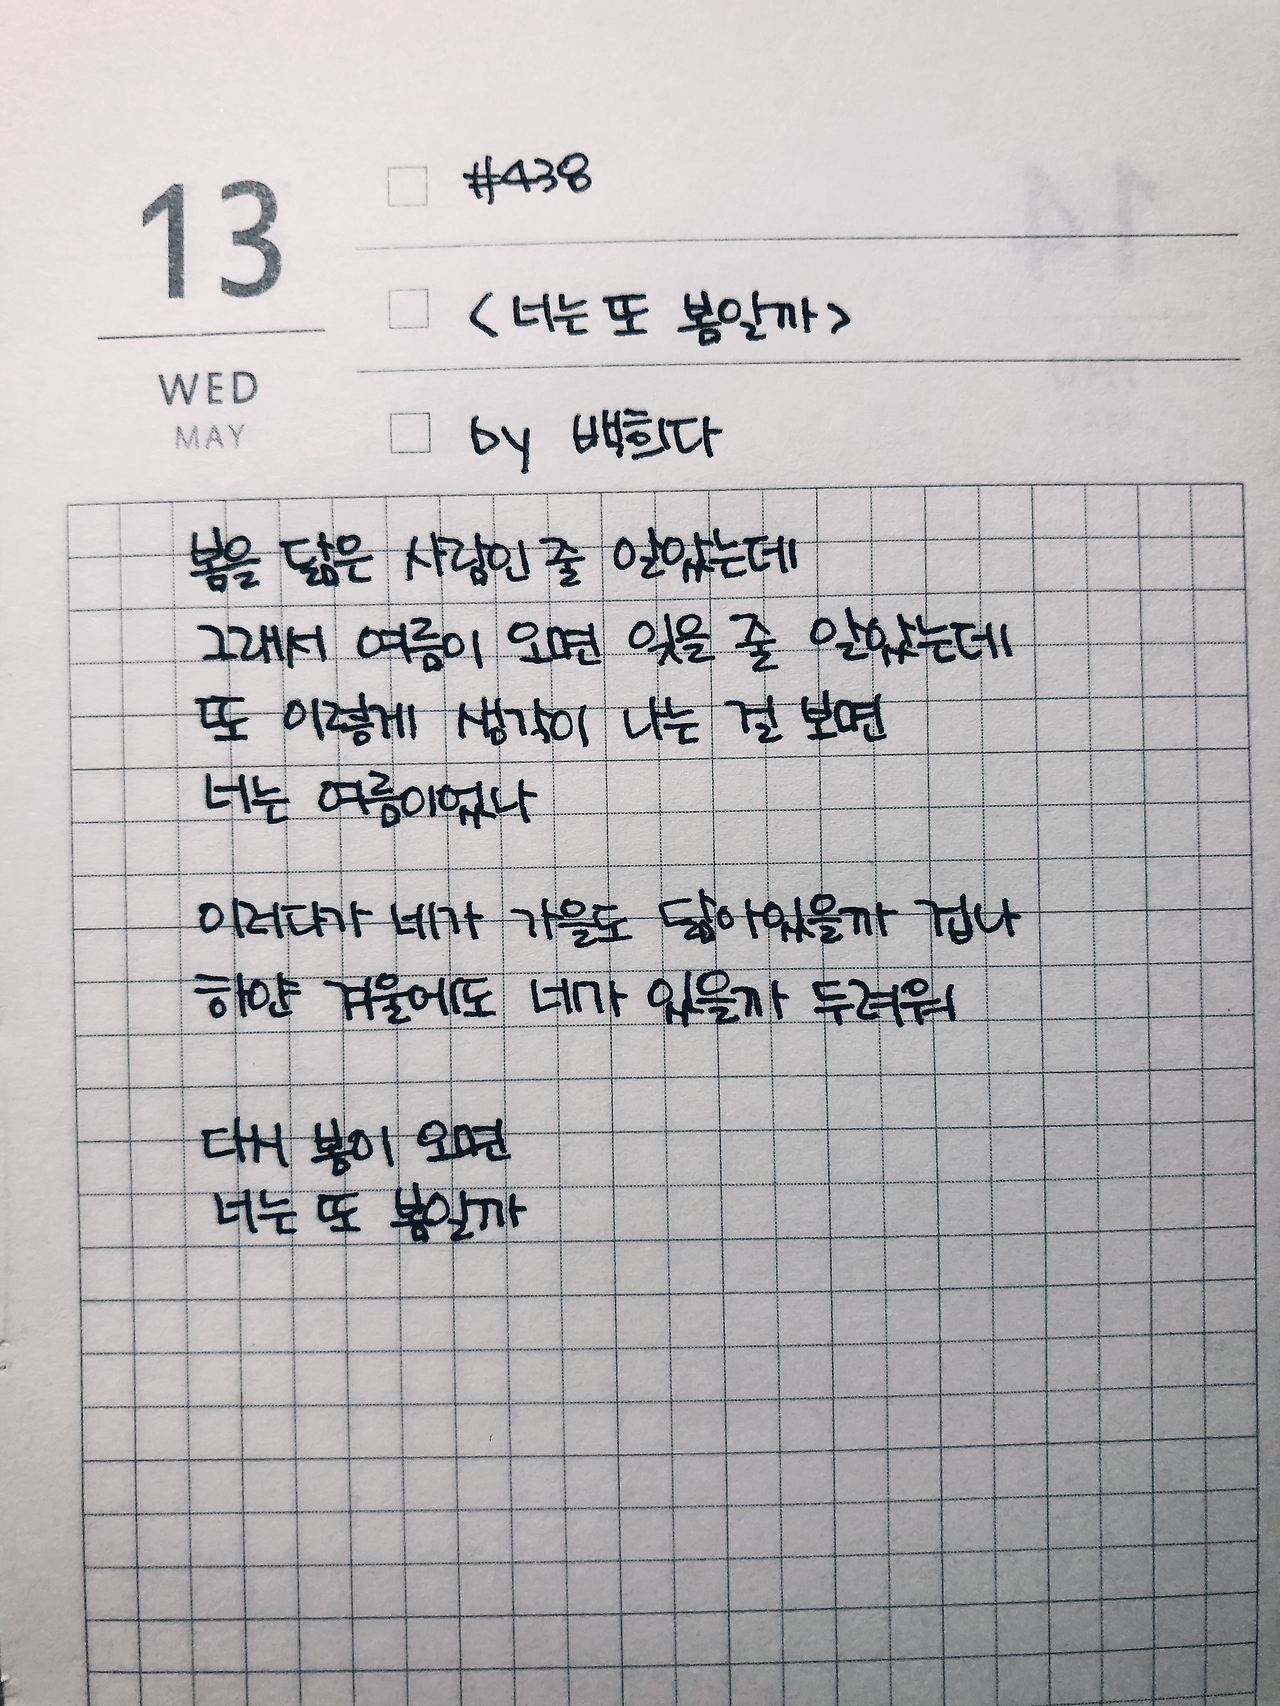 13
WED
MAY
#438
<너는 또 봄일까>
by 백희다
봄을 닮은 사람인 줄 알았는데
그래서 여름이 오면 잊을 줄 알았는데
또 이렇게 생각이 나는 걸 보면
너는 여름이었나
이러다가 네가 가을도 닮아있을까 겁나
하얀 겨울에도 네가 있을까 두려워
다시 봄이 오면
너는 또 봄일까